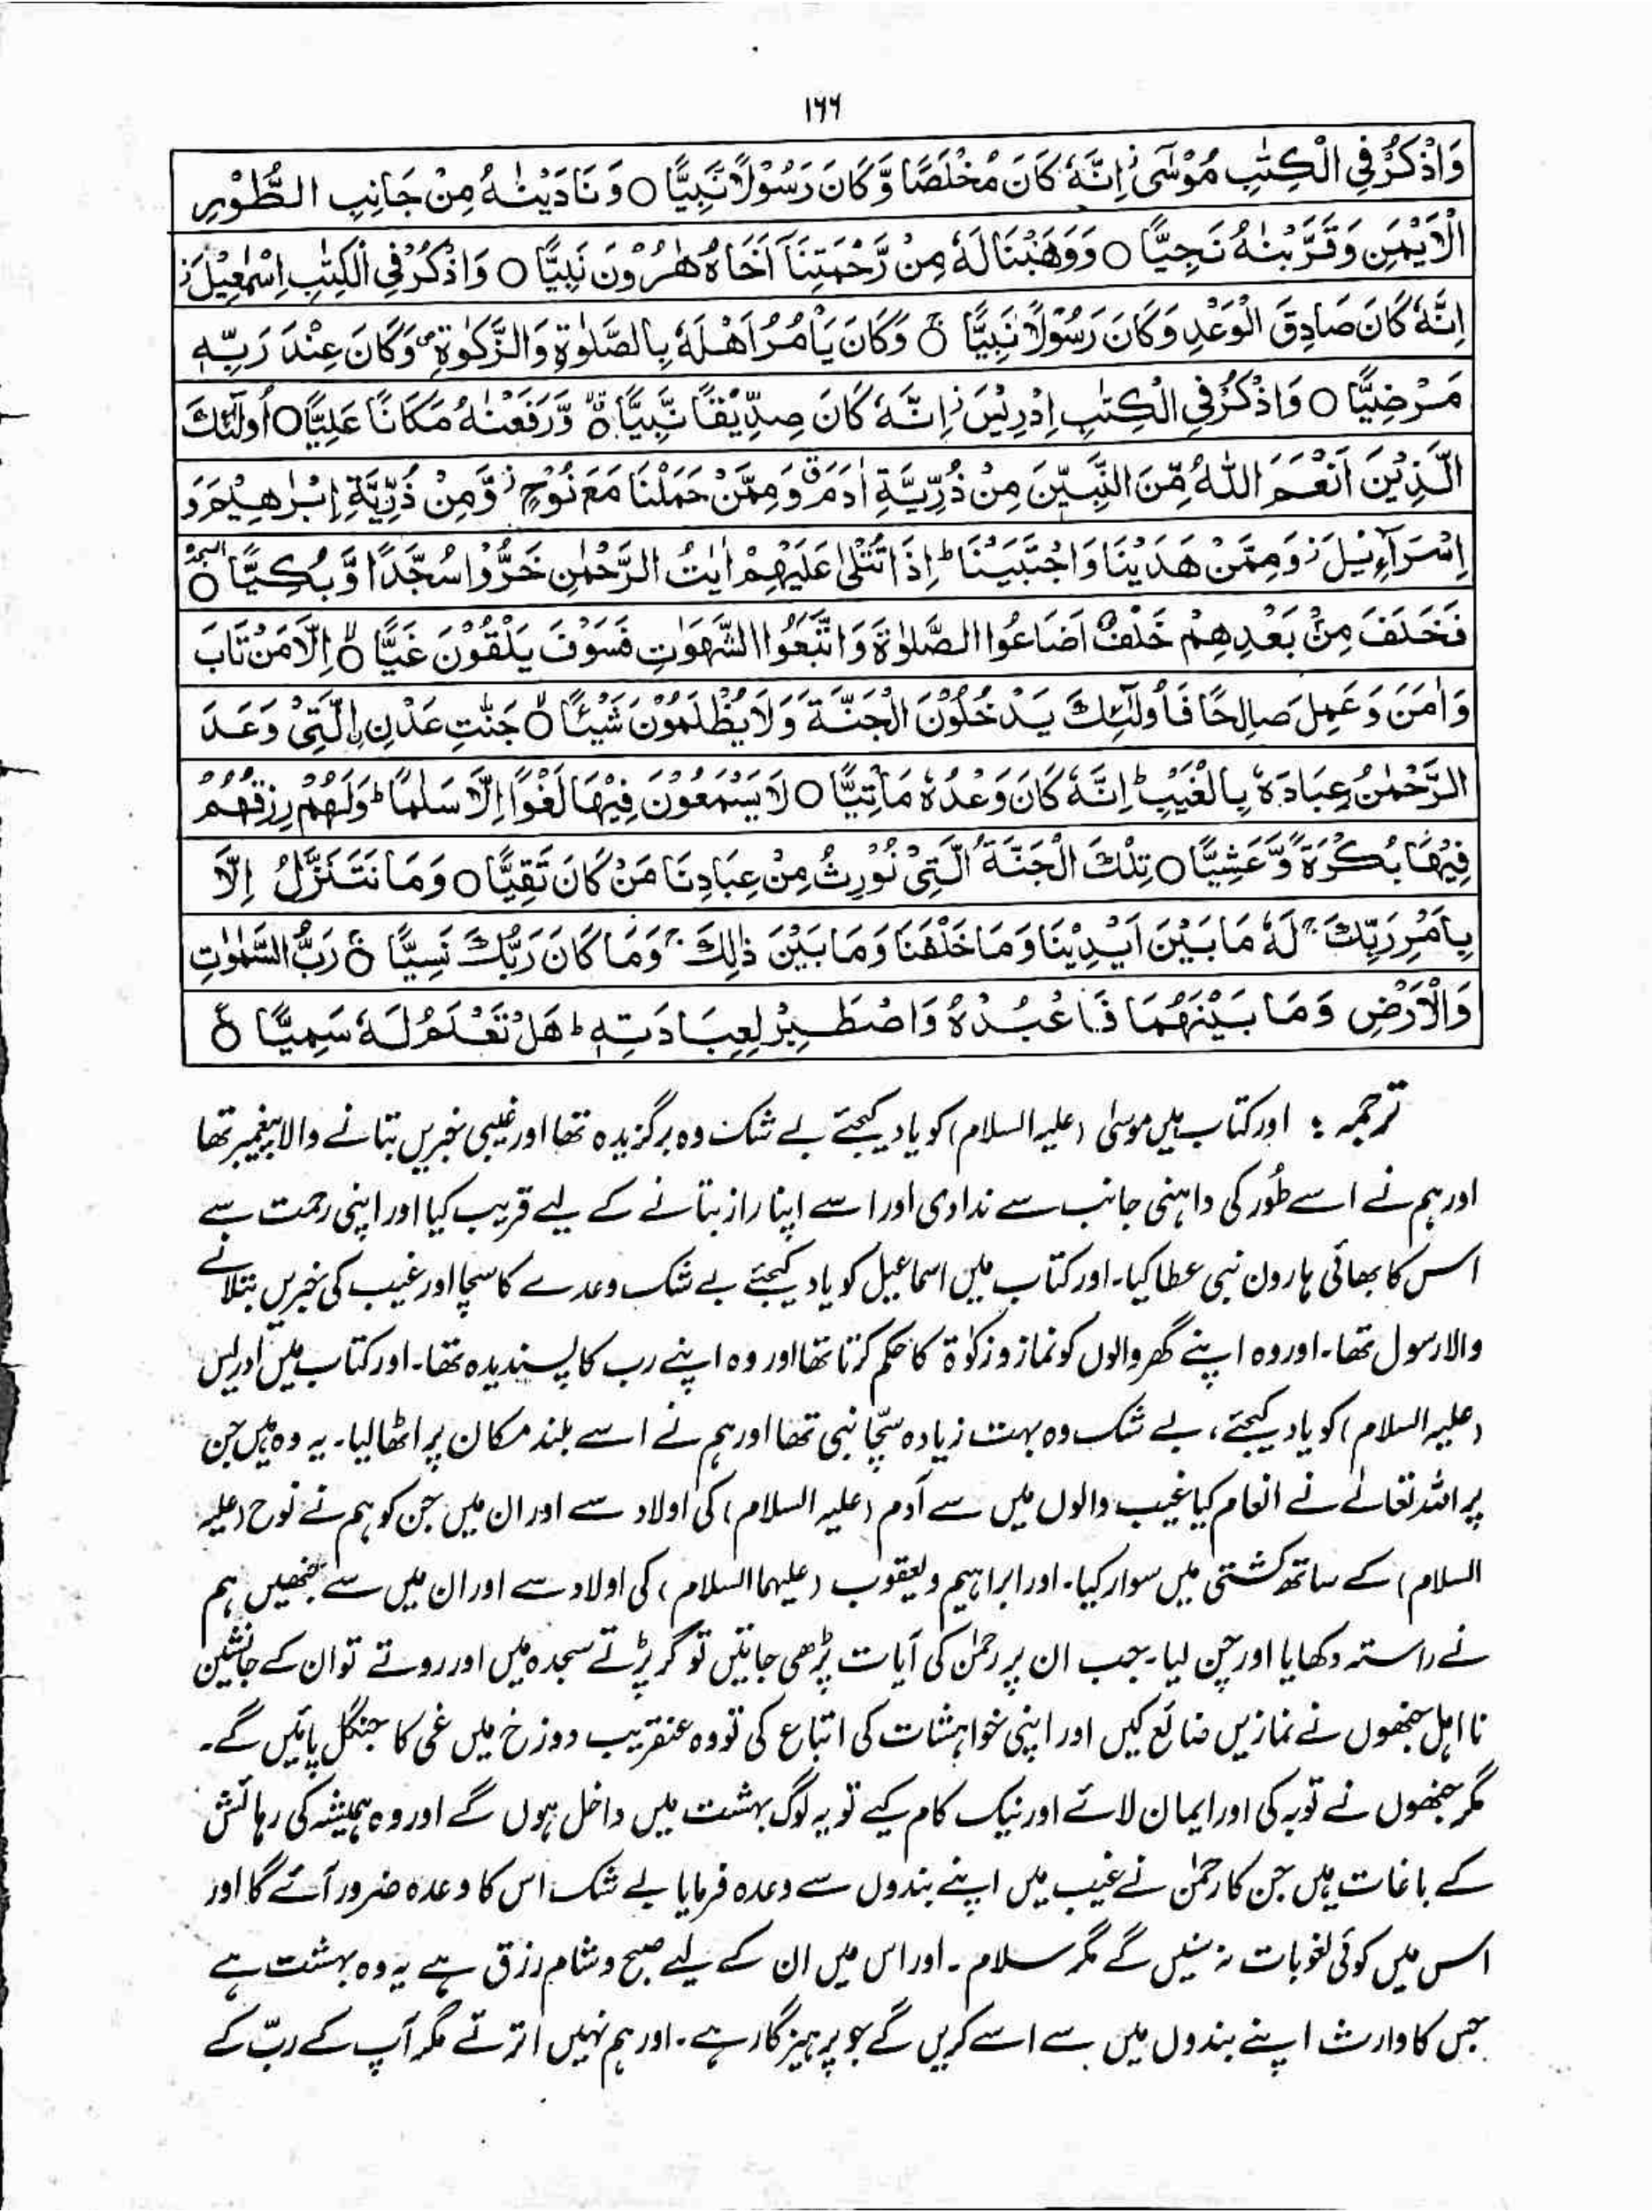 ۱۶۶
وَاذْكُرْ فِي الْكِتٰبِ مُوْسٰٓى ۡ اِنَّهٗ كَانَ مُخْلَصًا وَّكَانَ رَسُوْلًا نَّبِيًّا ○ وَنَادَيْنٰهُ مِنْ جَانِبِ الطُّوْرِ
الْاَيْمَنِ وَقَرَّبْنٰهُ نَجِيًّا ○ وَوَهَبْنَا لَهٗ مِنْ رَّحْمَتِنَآ اَخَاهُ هٰرُوْنَ نَبِيًّا ○ وَاذْكُرْ فِي الْكِتٰبِ اِسْمٰعِيْلَ ۡ
اِنَّهٗ كَانَ صَادِقَ الْوَعْدِ وَكَانَ رَسُوْلًا نَّبِيًّا ○ۚ وَكَانَ يَاْمُرُ اَهْلَهٗ بِالصَّلٰوةِ وَالزَّكٰوةِ ۪ وَكَانَ عِنْدَ رَبِّهٖ
مَرْضِيًّا ○ وَاذْكُرْ فِي الْكِتٰبِ اِدْرِيْسَ ۡ اِنَّهٗ كَانَ صِدِّيْقًا نَّبِيًّا ○ۙ وَّرَفَعْنٰهُ مَكَانًا عَلِيًّا ○ اُولٰٓئِكَ
الَّذِيْنَ اَنْعَمَ اللّٰهُ مِّنَ النَّبِيّٖنَ مِنْ ذُرِّيَّةِ اٰدَمَ ۤ وَمِمَّنْ حَمَلْنَا مَعَ نُوْحٍ ۡ وَّمِنْ ذُرِّيَّةِ اِبْرٰهِيْمَ وَ
اِسْرَآءِيْلَ ۡ وَمِمَّنْ هَدَيْنَا وَاجْتَبَيْنَا ؕ اِذَا تُتْلٰى عَلَيْهِمْ اٰيٰتُ الرَّحْمٰنِ خَرُّوْا سُجَّدًا وَّبُكِيًّا ○ السجدة
فَخَلَفَ مِنْۢ بَعْدِهِمْ خَلْفٌ اَضَاعُوا الصَّلٰوةَ وَاتَّبَعُوا الشَّهَوٰتِ فَسَوْفَ يَلْقَوْنَ غَيًّا ○ۙ اِلَّا مَنْ تَابَ
وَاٰمَنَ وَعَمِلَ صَالِحًا فَاُولٰٓئِكَ يَدْخُلُوْنَ الْجَنَّةَ وَلَا يُظْلَمُوْنَ شَيْـًٔا ○ۙ جَنّٰتِ عَدْنِ اِۨلَّتِيْ وَعَدَ
الرَّحْمٰنُ عِبَادَهٗ بِالْغَيْبِ ؕ اِنَّهٗ كَانَ وَعْدُهٗ مَاْتِيًّا ○ لَا يَسْمَعُوْنَ فِيْهَا لَغْوًا اِلَّا سَلٰمًا ؕ وَلَهُمْ رِزْقُهُمْ
فِيْهَا بُكْرَةً وَّعَشِيًّا ○ تِلْكَ الْجَنَّةُ الَّتِيْ نُوْرِثُ مِنْ عِبَادِنَا مَنْ كَانَ تَقِيًّا ○ وَمَا نَتَنَزَّلُ اِلَّا
بِاَمْرِ رَبِّكَ ۚ لَهٗ مَا بَيْنَ اَيْدِيْنَا وَمَا خَلْفَنَا وَمَا بَيْنَ ذٰلِكَ ۚ وَمَا كَانَ رَبُّكَ نَسِيًّا ○ۚ رَبُّ السَّمٰوٰتِ
وَالْاَرْضِ وَمَا بَيْنَهُمَا فَاعْبُدْهُ وَاصْطَبِرْ لِعِبَادَتِهٖ ؕ هَلْ تَعْلَمُ لَهٗ سَمِيًّا ○ۧ
ترجمہ : اور کتاب میں موسیٰ (علیہ السلام) کو یاد کیجئے بے شک وہ برگزیدہ تھا اور غیبی خبریں بتانے والا پیغمبر تھا
اور ہم نے اسے طُور کی داہنی جانب سے ندا دی اور اسے اپنا راز بتانے کے لیے قریب کیا اور اپنی رحمت سے
اس کا بھائی ہارون نبی عطا کیا۔ اور کتاب میں اسماعیل کو یاد کیجئے بے شک وعدے کا سچا اور غیب کی خبریں بتلانے
والا رسول تھا۔ اور وہ اپنے گھر والوں کو نماز و زکوٰۃ کا حکم کرتا تھا اور وہ اپنے رب کا پسندیدہ تھا۔ اور کتاب میں ادریس
(علیہ السلام) کو یاد کیجئے، بے شک وہ بہت زیادہ سچّا نبی تھا اور ہم نے اسے بلند مکان پر اٹھا لیا۔ یہ وہ ہیں جن
پر اللہ تعالےٰ نے انعام کیا غیب والوں میں سے آدم (علیہ السلام) کی اولاد سے اور ان میں جن کو ہم نے نوح (علیہ
السلام) کے ساتھ کشتی میں سوار کیا۔ اور ابراہیم و یعقوب (علیہما السلام) کی اولاد سے اور ان میں سے جنھیں ہم
نے راستہ دکھایا اور چن لیا۔ جب ان پر رحمٰن کی آیات پڑھی جاتیں تو گر پڑتے سجدہ میں اور روتے تو ان کے جانشین
نااہل جنھوں نے نمازیں ضائع کیں اور اپنی خواہشات کی اتباع کی تو وہ عنقریب دوزخ میں غی کا جنگل پائیں گے۔
مگر جنھوں نے توبہ کی اور ایمان لائے اور نیک کام کیے تو یہ لوگ بہشت میں داخل ہوں گے اور وہ ہمیشہ کی رہائش
کے باغات ہیں جن کا رحمٰن نے غیب میں اپنے بندوں سے وعدہ فرمایا بے شک اس کا وعدہ ضرور آئے گا اور
اس میں کوئی لغو بات نہ سنیں گے مگر سلام۔ اور اس میں ان کے لیے صبح و شام رزق ہے یہ وہ بہشت ہے
جس کا وارث اپنے بندوں میں سے اسے کریں گے جو پرہیزگار ہے۔ اور ہم نہیں اترتے مگر آپ کے ربّ کے